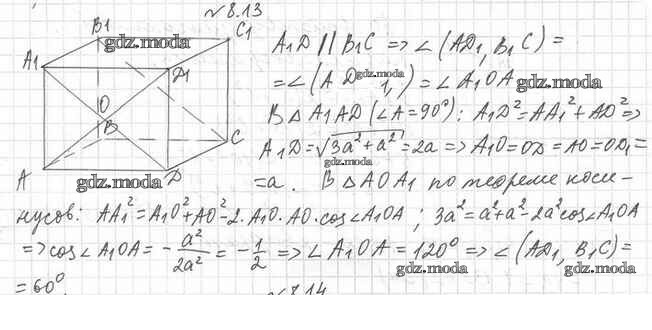 № 8.13
B1 C1 A1 D1 O B C A D
gdz.moda
gdz.moda
A₁D || B₁C => ∠(AD₁, B₁C) =
= ∠(A D gdz.moda 1, ) = ∠A₁OA gdz.moda
В △ A₁AD (∠A=90°): A₁D²=AA₁²+AD² =>
A₁D=√3a²+a²=2a => A₁O=OD=AO=OD₁=
gdz.moda
=a. В △AOA₁ по теореме коси-
нусов: AA₁²=A₁O²+AO²-2·A₁O·AO·cos∠A₁OA; 3a²=a²+a²-2a²cos∠A₁OA
=> cos∠A₁OA = -a²/2a² = -1/2 => ∠A₁OA = 120° => ∠(AD₁, B₁C) =
gdz.moda gdz.moda
= 60°.
№ 8.14